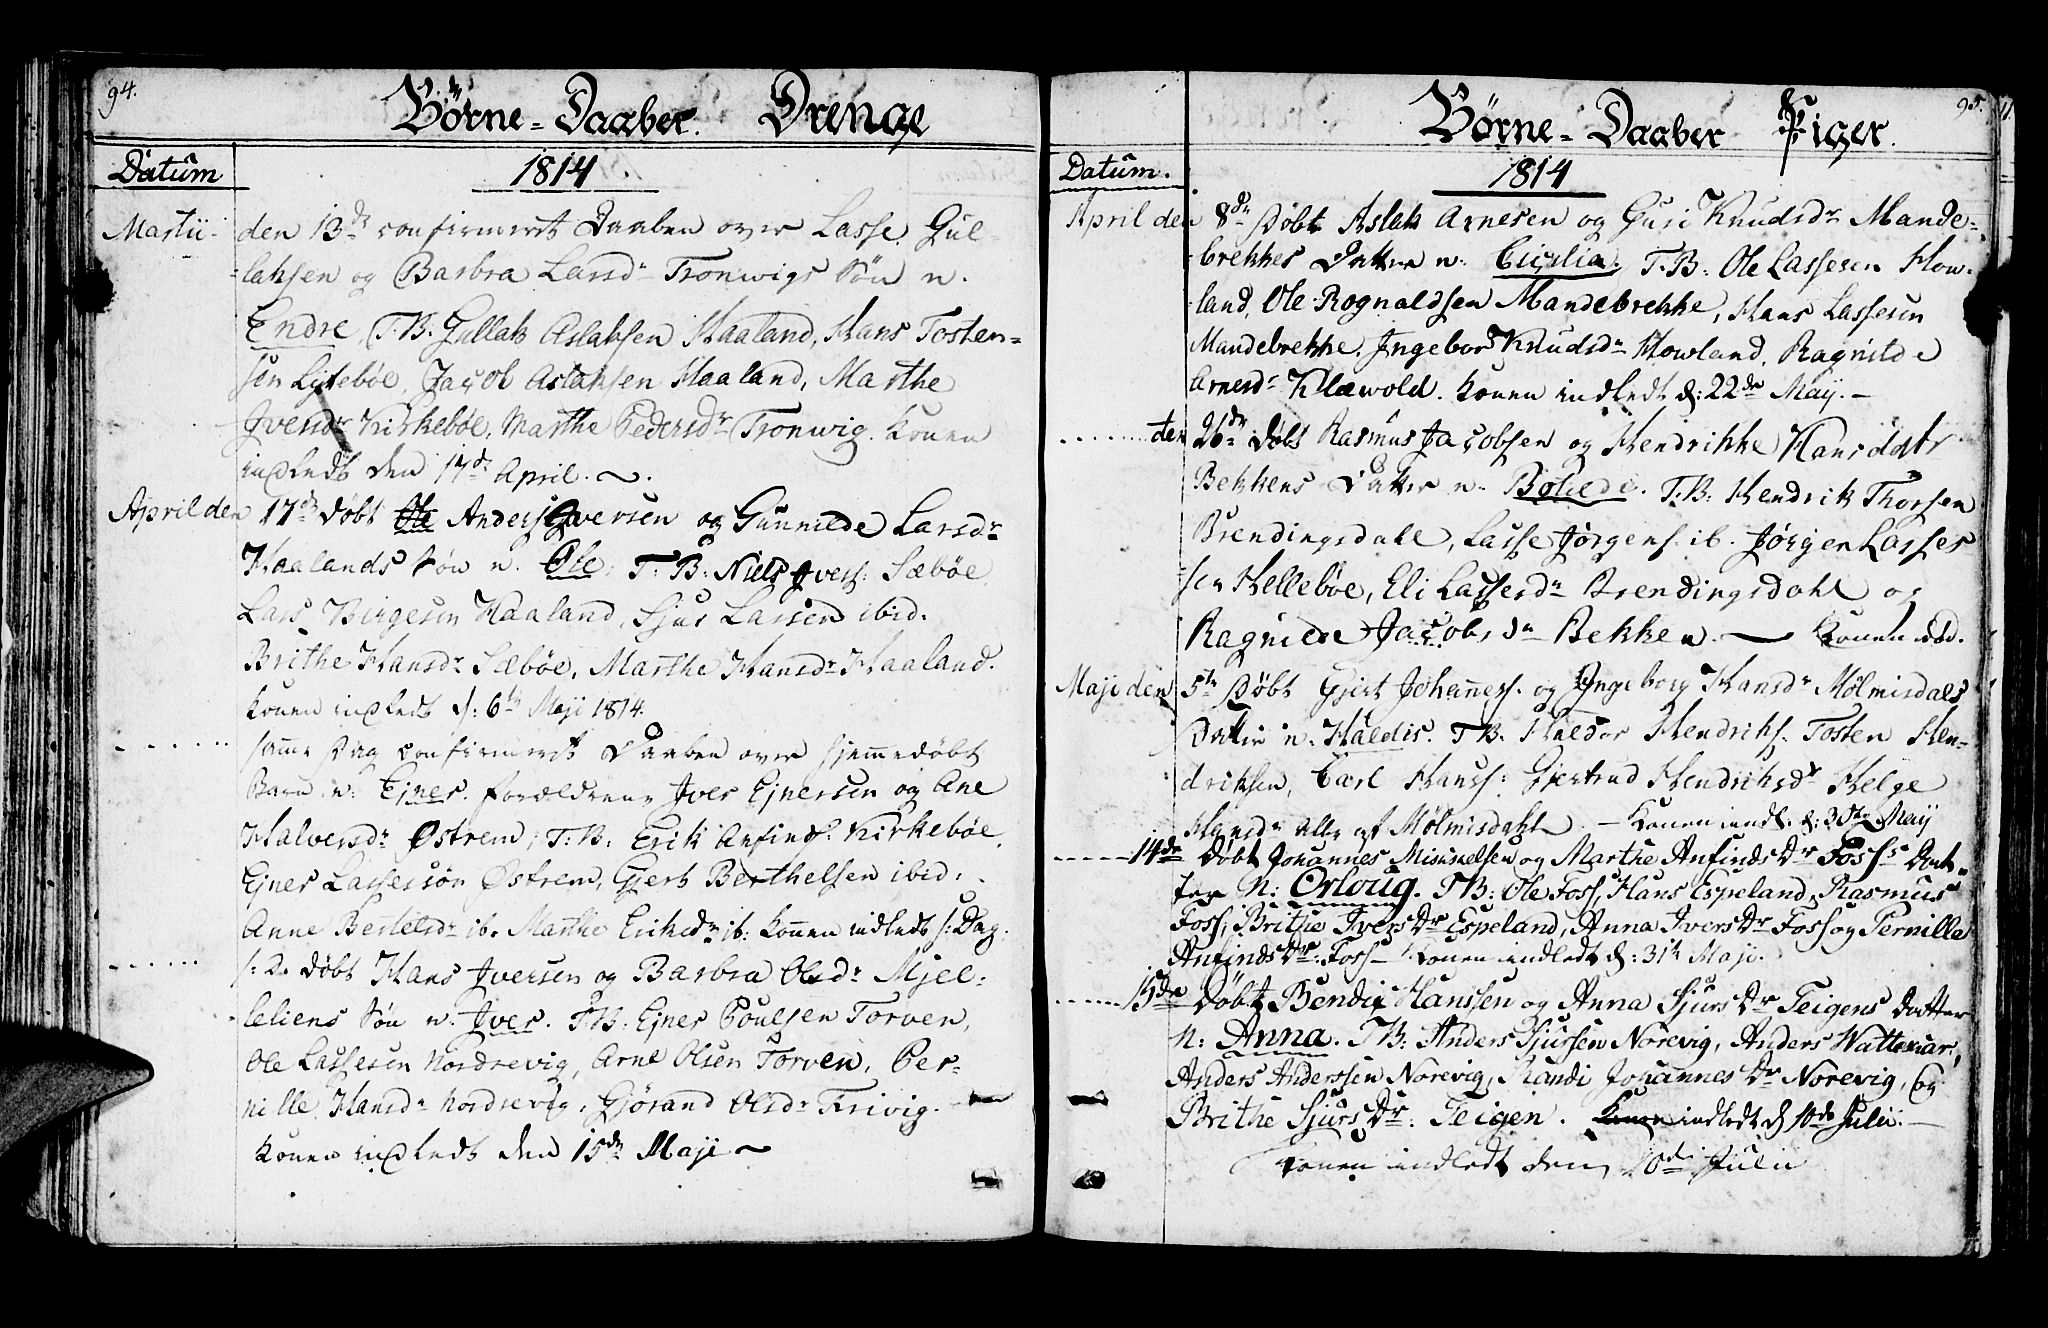 94.
Börne=Daaber. Drenge
Datum
1814
Martii
den 13de confirmeret Daaben over Lasse Gul=
laksen og Barbra Larsdr Tronwigs Sön n.
Endre, T.B. Gullak Aslaksen Haaland, Hans Tosten=
sen Lyseböe, Jacob Aslaksen Haaland, Marthe
Iversdr Kirkeböe, Marthe Pedersdr Tronwig. Konen
indledt den 17de April.
April den 17de döbt Ole Anders Iversen og Gunnilde Larsdr
Haalands Sön n. Ole, T.B. Niels Ivers. Sæböe
Lars Birgesen Haaland, Sjur Larsen ibid.
Brithe Hansdr Sæböe, Marthe Hansdr Haaland.
Konen indledt d. 6te Maji 1814.
samme Dag confirmeret Daaben over hjemmedöbt
Barn n. Ejner. Forældrene Iver Ejnersen og Ane
Halversdr Østrem, T.B. Erik Anfinds. Kirkeböe,
Ejner Lassessøn Østrem, Gjert Berthelsen ibid.
Anne Bertelsdr ib. Marthe Eriksdr ib. Konen indledt s. Dag.
s. D. döbt Hans Iversen og Barbra Olsdr Mjel=
leliens Sön n. Iver. T.B. Ejner Poulsen Torven,
Ole Lassesen Nordrevig, Arne Olsen Torven, Per=
nille Hansdr Nordrevig, Gjörand Olsdr Frivig.
Konen indledt den 15de Maji
95.
Börne=Daaber Piger.
Datum.
1814
April den 8de Döbt Aslak Arnesen og Guri Knudsdr Mande=
brekkes Datter n. Cicilia. T.B: Ole Lassesen How=
land, Ole Rognaldsen Mandebrekke, Hans Lassesen
Mandebrekke, Ingebor Knudsdr Howland, Ragnilde
Arnesdr Klæwold. Konen indledt d: 22de May.
den 26de Döbt Rasmus Jacobsen og Hendrikke Hansddtr
Bekkens Datter n. Bolede. T.B: Hendrik Thorsen
Brendingsdahl, Lasse Jörgens. ib. Jörgen Lasses
sen Helleböe, Eli Lassesdr Brendingsdahl og
Ragnilde Jacobsdr Bekken. Konen död.
Maji den 5te Döbt Gjert Johanness. og Ingeborg Hansdr Mölmisdals
Datter n. Haldis. T.B. Haldor Hendriks. Tosten Hen=
driksen, Carl Hanss: Gjertrud Hendriksdr Helge
Hansdr alle af Mölmisdahl. Konen indl. d: 30te May
14de Døbt Johannes Mikkelsen og Marthe AnfindsDr Foss's Dat=
ter N: Orloug. TB: Ole Foss, Hans Espeland, Rasmus
Foss, Brithe IversDr Espeland, Anna IversDr Foss og Pernilla
AnfindsDr: Foss Konen indledt d: 31te Maji.
15de Døbt Bendix Hanssen og Anna SjursDr Teigens Datter
N: Anna. TB: Anders Sjurssen Norevig, Anders
Anders Anderssen Norevig, Randi JohannesDr Norevig, og
Brithe SjursDr: Teigen. Konen indledt d 10de Julii.
Konen indledt den 10de Julii